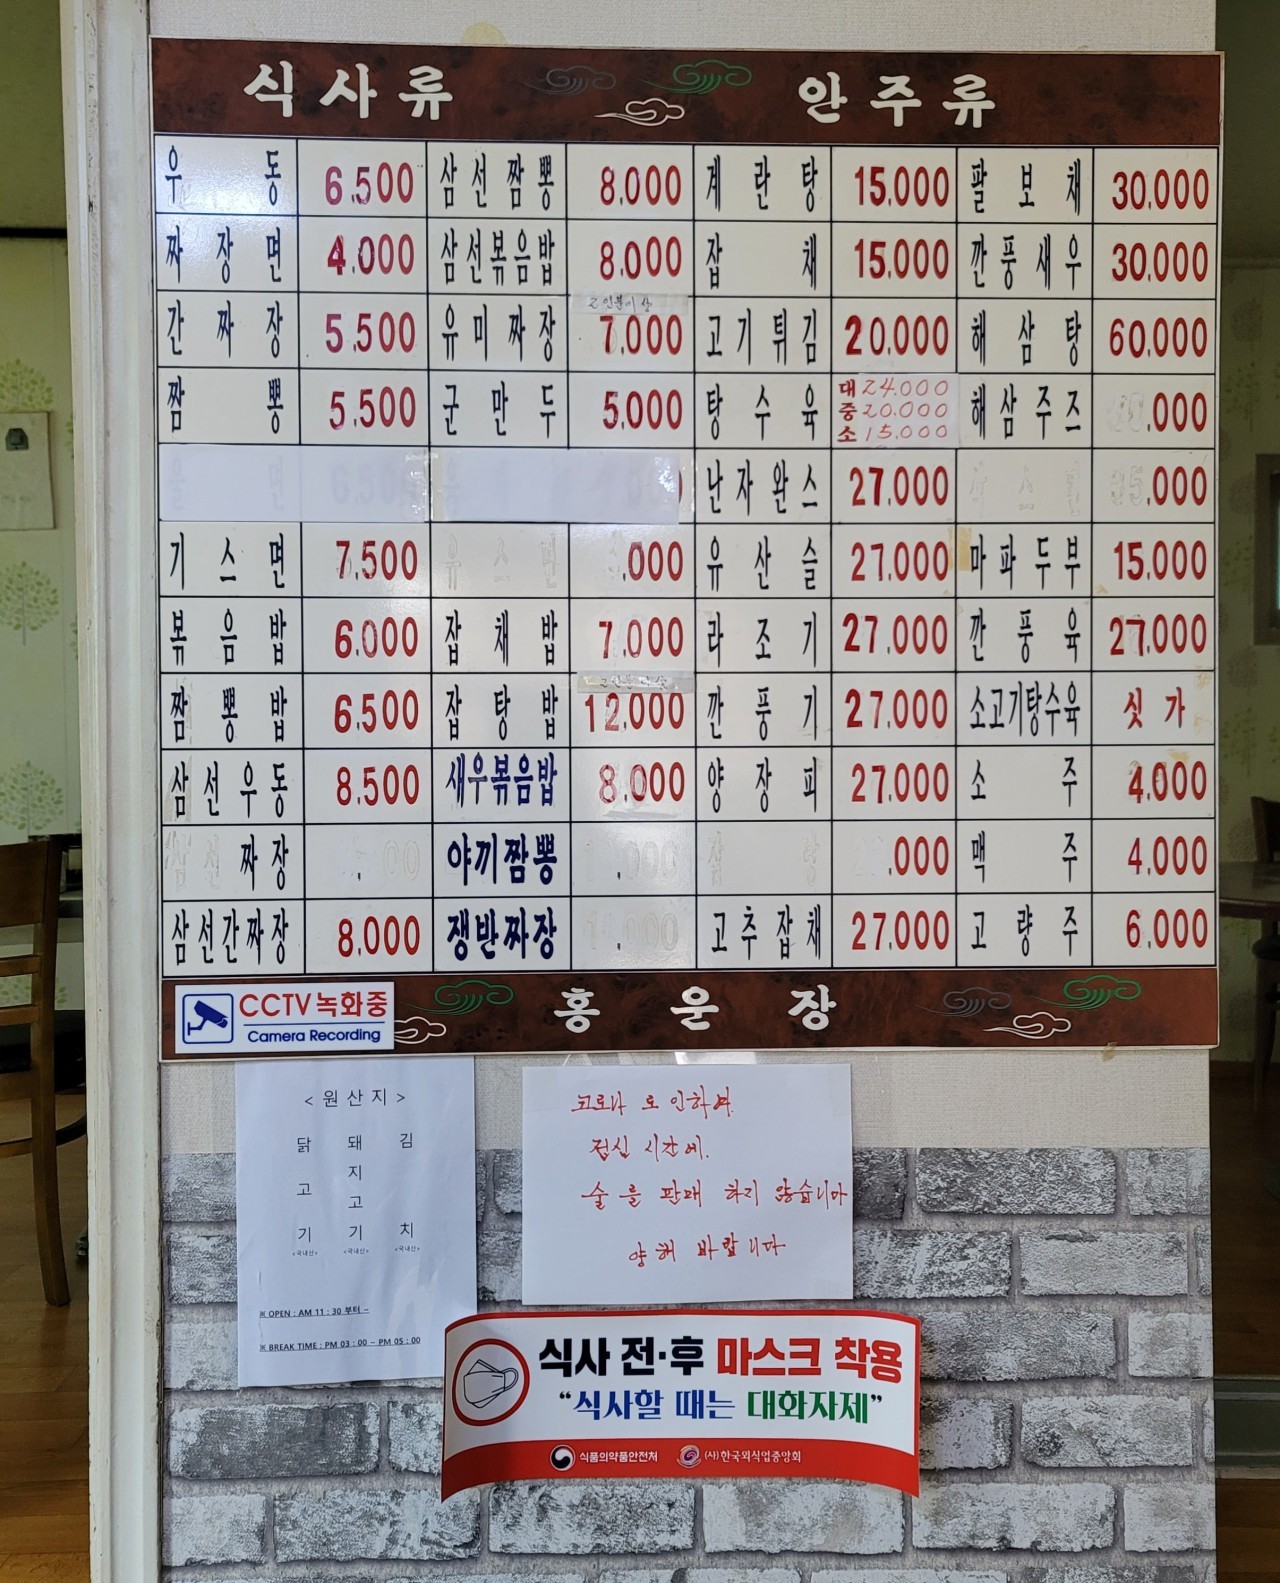 식사류 안주류
우동 6.500 삼선짬뽕 8.000 계란탕 15.000 팔보채 30.000
짜장면 4.000 삼선볶음밥 8.000 잡채 15.000 깐풍새우 30.000
2인분이상
간짜장 5.500 유미짜장 7.000 고기튀김 20.000 해삼탕 60.000
짬뽕 5.500 군만두 5.000 탕수육 대 24.000 해삼주즈 .000
중 20.000
소 15.000
난자완스 27.000 .000
기스면 7.500 .000 유산슬 27.000 마파두부 15.000
볶음밥 6.000 잡채밥 7.000 라조기 27.000 깐풍육 27.000
짬뽕밥 6.500 잡탕밥 12.000 깐풍기 27.000 소고기탕수육 싯가
삼선우동 8.500 새우볶음밥 8.000 양장피 27.000 소주 4.000
짜장 . 야끼짬뽕 . .000 맥주 4.000
삼선간짜장 8.000 쟁반짜장 . 고추잡채 27.000 고량주 6.000
CCTV녹화중
Camera Recording
홍운장
<원산지>
닭고기 돼지고기 김치
<국내산> <국내산> <국내산>
※ OPEN : AM 11 : 30 부터 ~
※ BREAK TIME : PM 03 : 00 ~ PM 05 : 00
코로나 로 인하여
점심 시간에.
술 를 판매 하지 않습니다
양해 바랍니다
식사 전·후 마스크 착용
“식사할 때는 대화자제”
식품의약품안전처 (사)한국외식업중앙회